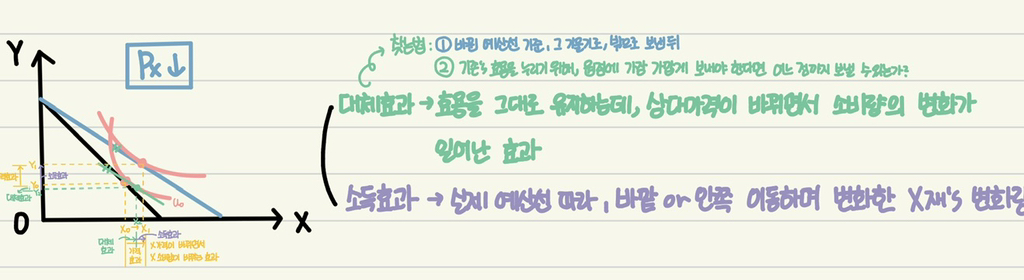 Y
Px↓
찾는법 : ① 바뀐 예산선 기준, 그 기울기로, 밖으로 보낸뒤
② 기존's 효용을 누리기 위해, 원점에 가장 가깝게 보내야 한다면 어느 점까지 보낼 수 있는가?
대체효과 → 효용을 그대로 유지하는데, 상대가격이 바뀌면서 소비량의 변화가
일어난 효과
소득효과 → 실제 예산선 따라, 바깥 or 안쪽 이동하며 변화한 X재's 변화량
Y₁
소득효과
Y₀
대체효과
U₀
O
X₀ → X₁
X
대체
효과
가격
효과
소득효과
X 가격이 바뀌면서
X 소비량이 바뀌는 효과